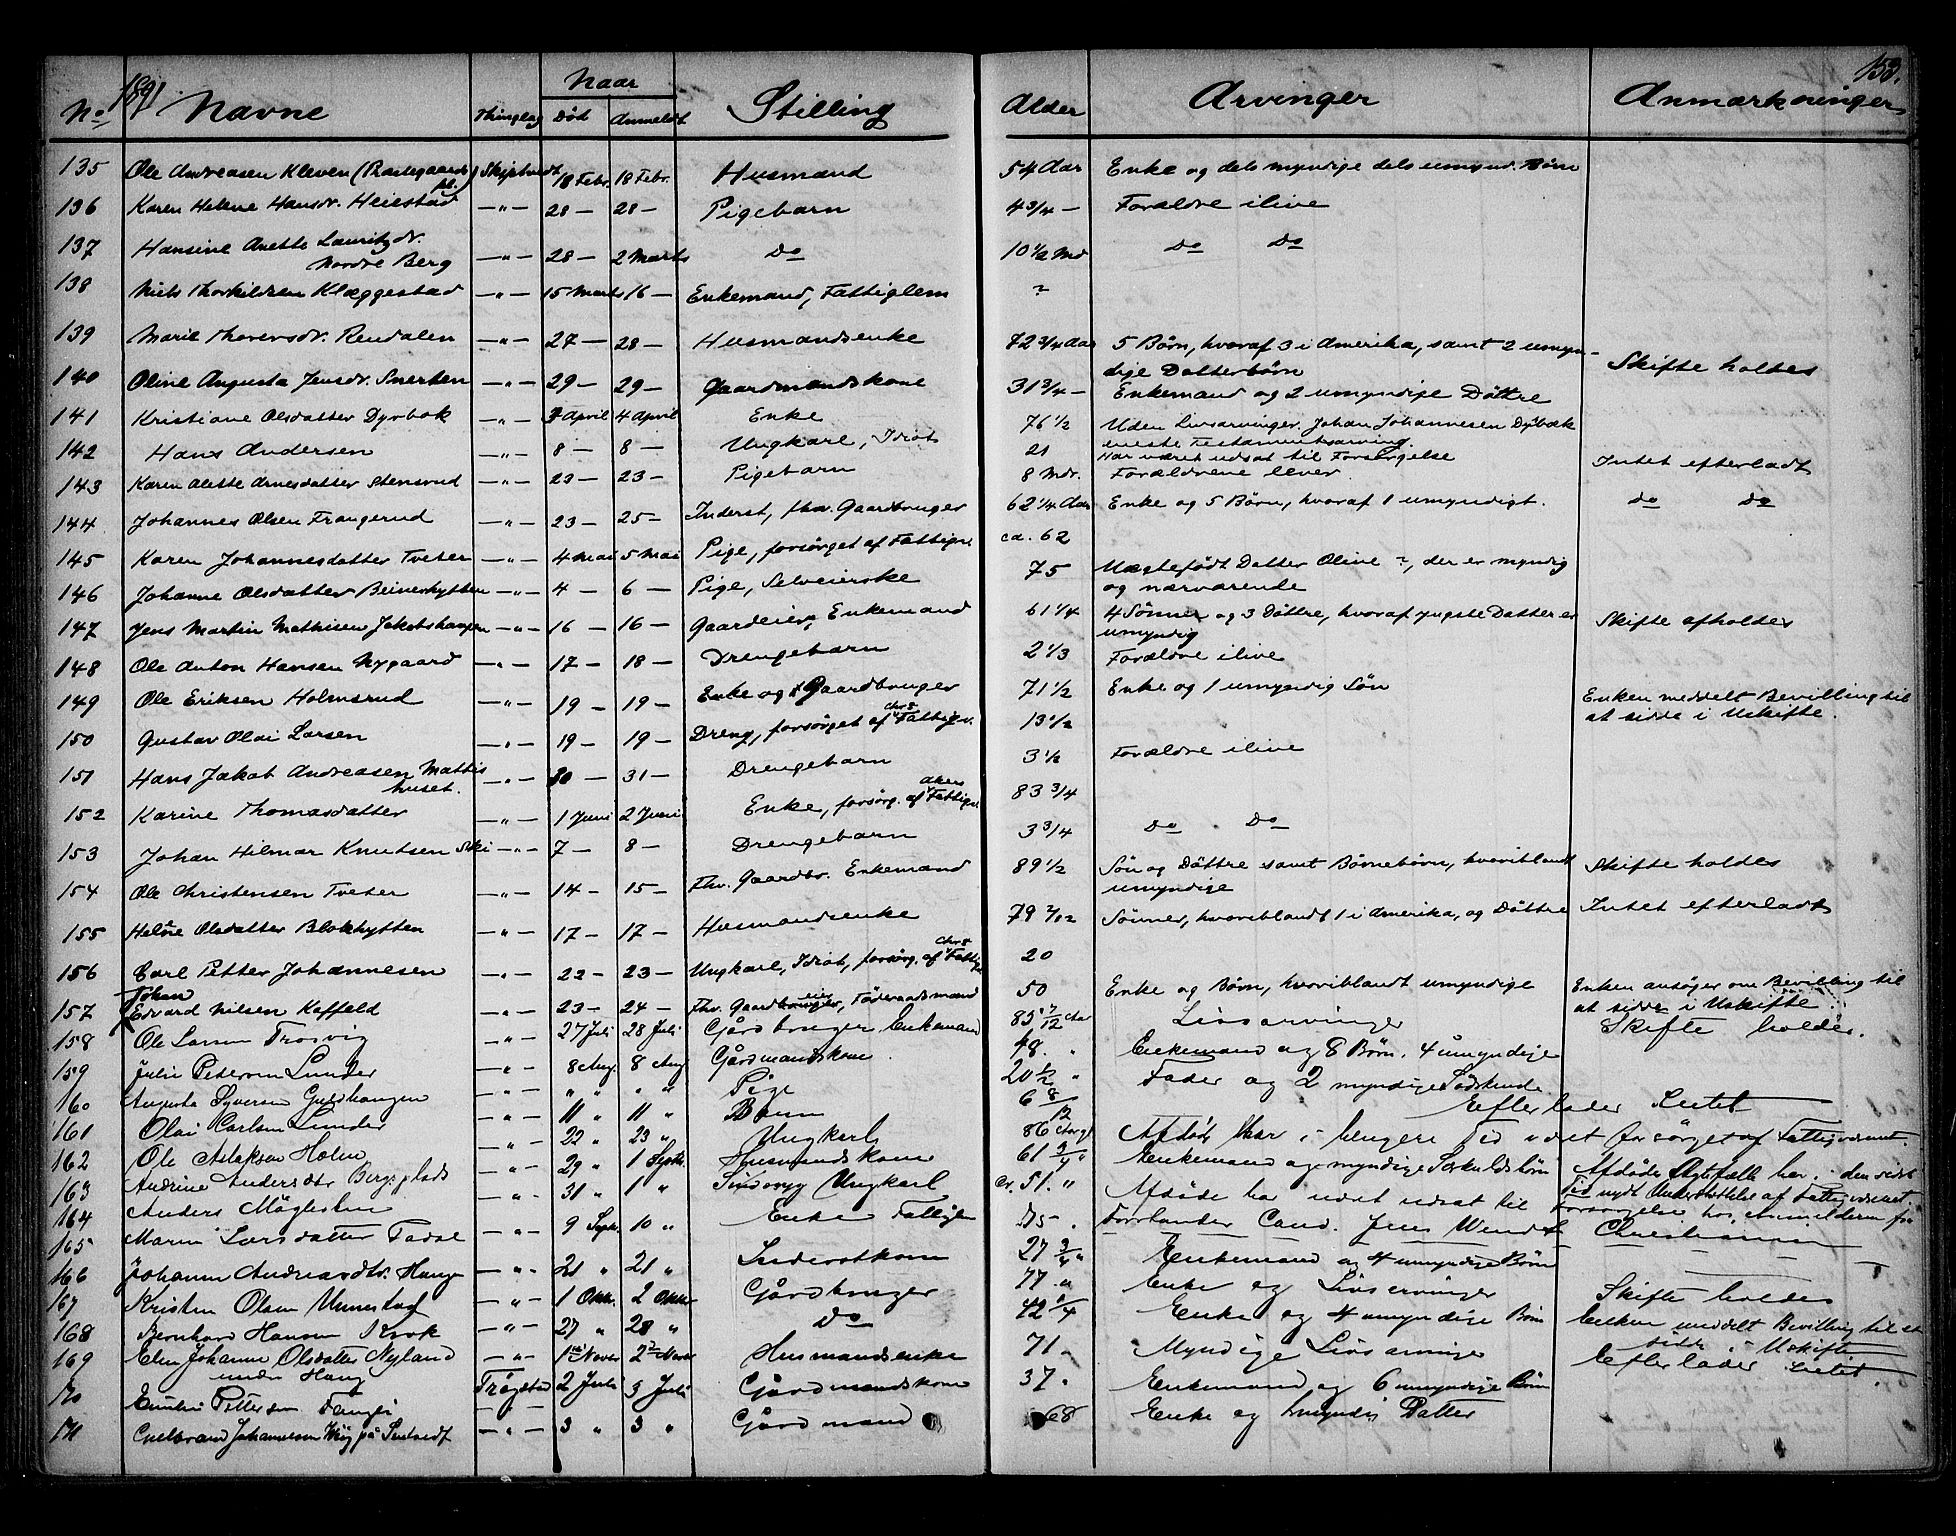 1891
153.
No Navne Thinglag Naar Død Anmeldt Stilling Alder Arvinger Anmærkninger
135 Ole Andreasen Kleven (Præstegaards pl.) Skiptvedt 18 Febr. 18 Febr. Husmand 54 Aar Enke og dels myndige dels umynd. Børn
136 Karen Helene Hansdr. Heiestad —"— 28 — 28 — Pigebarn 4 3/4 — Forældre ilive
137 Hansine Anette Lauritzdr. Nordre Berg —"— 28 — 2 Marts Do 10 1/2 Md Do Do
138 Niels Thorkildsen Klæggestad —"— 15 Marts 16 — Enkemand, Fattiglem ?
139 Marie Thoresdr. Rendalen —"— 27 — 28 — Husmandsenke 72 3/4 Aar 5 Børn, hvoraf 3 i Amerika, samt 2 umyn-
dige Datterbørn Skifte holdes
140 Oline Augusta Jensdr. Smerten —"— 29 — 29 — Gaardmandskone 31 3/4 — Enkemand og 2 umyndige Døttre
141 Kristiane Olsdatter Dyrbok —"— 3 April 4 April Enke 76 1/2 Uden Livsarvinger. Johan Johannesen Dybæk
eneste Testamentsarving.
142 Hans Andersen —"— 8 — 8 — Ungkarl, Idiot 21 Har været udsat til Forsørgelse
143 Karen Alette Arnesdatter Stensrud —"— 23 — 23 — Pigebarn 8 Mdr. Forældrene lever. Intet efterladt
144 Johannes Olsen Frangerud —"— 23 — 25 — Inderst, fhv. Gaardbruger 62 1/4 Aar Enke og 5 Børn, hvoraf 1 umyndigt. do do
145 Karen Johannesdatter Tveter —"— 4 Mai 5 Mai Pige, forsørget af Fattigv. ca. 62
146 Johanne Olsdatter Beinerhytten —"— 4 — 6 — Pige, Selveierske 75 Uægtefødt Datter Oline ?, der er myndig
og nærværende
147 Jens Martin Mathisen Jakobshaugen —"— 16 — 16 — Gaardeier, Enkemand 61 1/4 4 Sønner og 3 Døttre, hvoraf yngste Datter er
umyndig Skifte afholdes
148 Ole Anton Hansen Nygaard —"— 17 — 18 — Drengebarn 2 1/3 Forældre ilive
149 Ole Eriksen Holmsrud —"— 19 — 19 — Enke og Gaardbruger 71 1/2 Enke og 1 umyndig Søn Enken meddelt Bevilling til
at sidde i Uskifte.
150 Gustav Olai Larsen —"— 19 — 19 — Dreng, forsørget af Chra Fattigv. 13 1/2
151 Hans Jakob Andreasen Mattishuset. —"— 30 — 31 — Drengebarn 3 1/2 Forældre ilive
152 Karine Thomasdatter —"— 1 Juni 2 Juni Enke, forsørg. af Akers Fattigv. 83 3/4
153 Johan Hilmar Knutsen Ski —"— 7 — 8 — Drengebarn 3 3/4 Do Do
154 Ole Christensen Tveter —"— 14 — 15 — Fhv. Gaardbr. Enkemand 89 1/2 Søn og Døttre samt Børnebørn, hvoriblandt
umyndige Skifte holdes
155 Heléne Olsdatter Blokhytten —"— 17 — 17 — Husmandsenke 79 2/12 Sønner, hvoriblandt 1 i Amerika, og Døttre Intet efterladt
156 Carl Petter Johannesen —"— 22 — 23 — Ungkarl, Idiot, forsørg. af Chra Fattigv. 20
157 Johan Edvard Nilsen Kaffeld —"— 23 — 24 — Fhv. Gaardbruger, Føderaadsmand 50 Enke og Børn, hvoriblandt umyndige Enken ansøger om Bevilling til
at sidde i Uskifte
158 Ole Larsen Trosvig —"— 27 Juli 28 Juli Gårdbruger Enkemand 85 7/12 Aar Livsarvinger Skifte holdes.
159 Julie Petersen Lunder —"— 8 Aug. 8 Aug Gårdmandskone 48. " Enkemand og 8 Børn. 4 umyndige
160 Augusta Syversen Guldhaugen —"— " " " " Pige 20 1/2 " Fader og 2 myndige Sødskende
161 Olai Carlsen Lunder —"— 11 " 11 " Barn 6 8/12 Efterlader Intet
162 Ole Aslaksen Holm —"— 22 " 23 " Ungkarl 86 Aar Afdøde har i længere Tid været forsørget af Fattigvæsenet.
163 Andrine Andersdtr Bergsplads —"— 29 " 1 Septr. Husmandskone 61 3/4 " Enkemand og myndige Særkuldsbørn Afdødes Ægtefælle har i den sidst
Tid nydt Understøttelse af Fattigvæsenet
164 Anders Møglestu —"— 31 " 1 " Sindssyg Ungkarl Cr. 51. " Afdøde har været udsat til Forsørgelse hos Anmelderen fra
Forstander Cand. Jens Wendt Christiania
165 Maren Larsdatter Fadse —"— 9 Septr. 10 " Enke Fattige
166 Johanne Andreasdtr. Haug —"— 21 " 21 " Inderstkone 27 3/4 " Enkemand og 4 umyndige Børn
167 Kristen Olsen Unnestad —"— 1 Oktr. 2 Oktr Gårdbruger 77 " Enke og Livsarvinger Skifte holdes
168 Bernhard Hansen Krok —"— 27 " 28 " Do 42 1/4 Enke og 4 umyndige Børn Enken meddelt Bevilling til at
sidde i Uskifte
169 Elen Johanne Olsdatter Nyland under Haug —"— 1 Novbr 2 Novbr Husmandsenke 71. Myndige Livsarvinger Efterlader Intet.
170 Emilie Pettersen Trøgstad 2 Juli 3 Juli Gårdmandskone 37. Enkemand og 6 umyndige Børn
171 Johannesen —"— 3 " 3 " Gårdmand 68 Enke og umyndig Datter